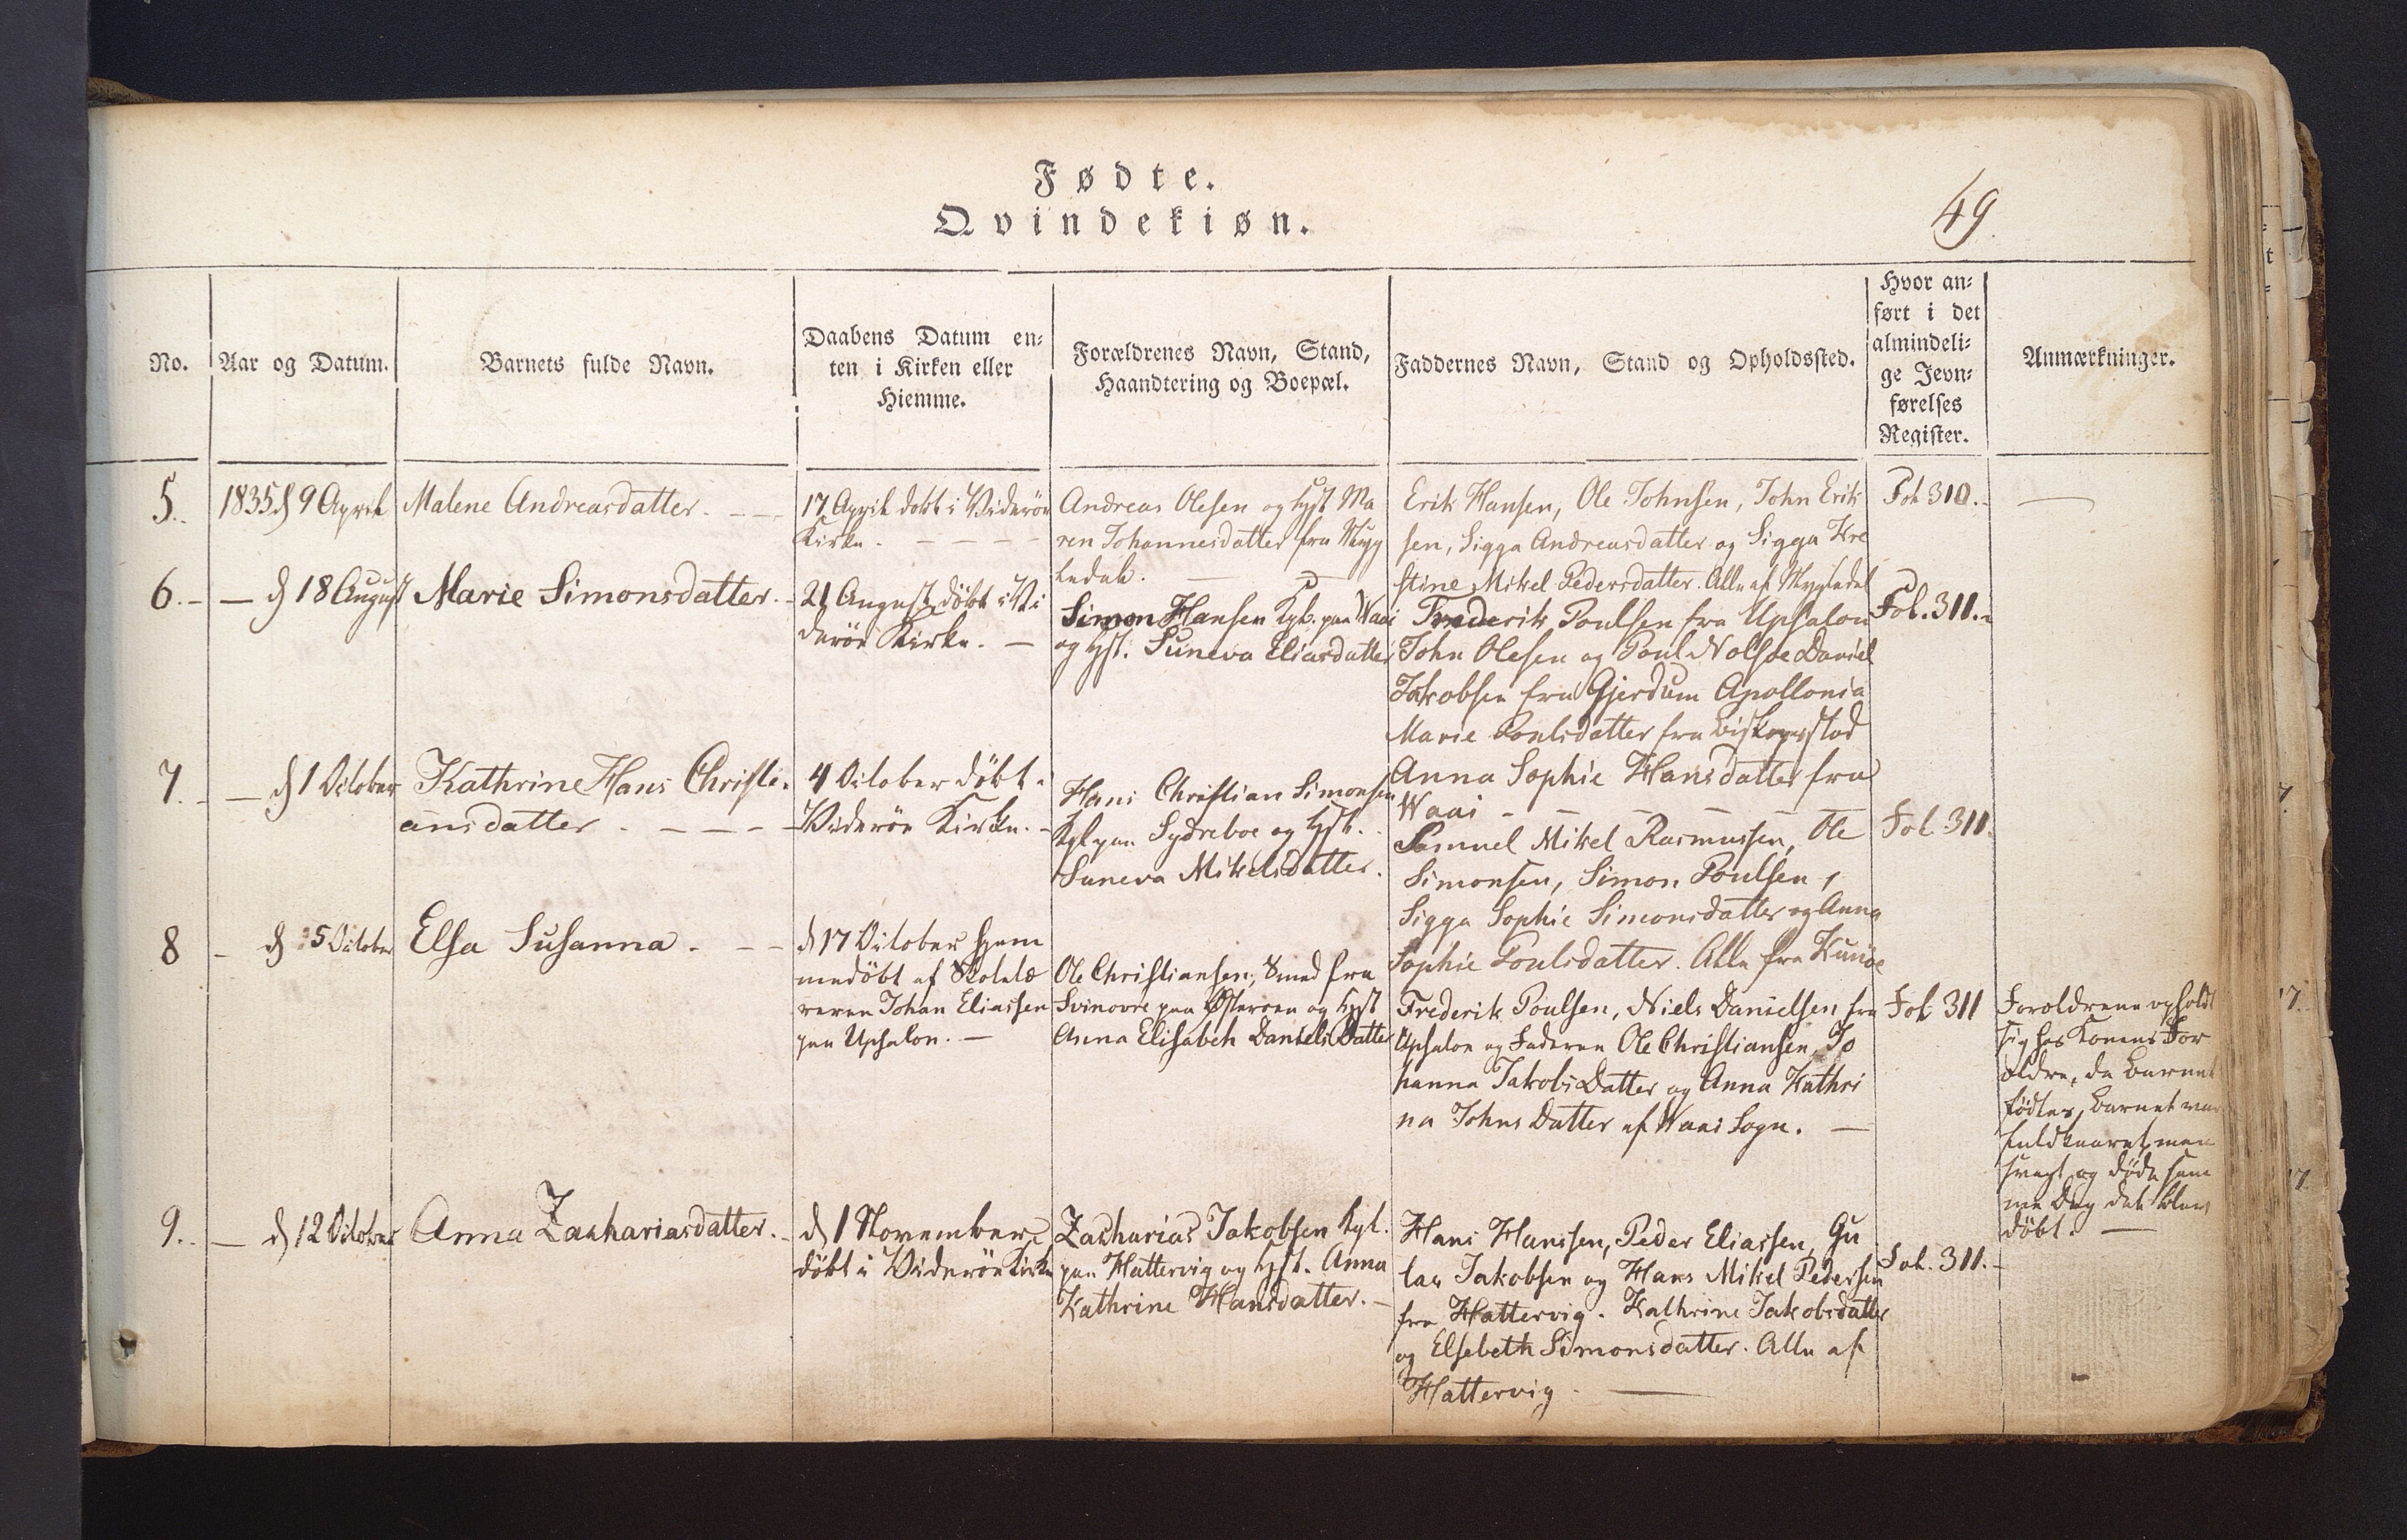 Fødte.
Qvindekiøn.
49.
No.
Aar og Datum.
Barnets fulde Navn.
Daabens Datum en-
ten i Kirken eller
Hiemme.
Forældrenes Navn, Stand,
Haandtering og Boepæl.
Faddernes Navn, Stand og Opholdssted.
Hvor an-
ført i det
almindeli-
ge Jevn-
førelses
Register.
Anmærkninger.
5.
1835 d 9 April
Malene Andreasdatter.
17 April døbt i Viderøe
Kirke.
Andreas Olesen og Hst Ma
ren Johannesdatter fra Mygg
ledal.
Erik Hansen, Ole Johnsen, John Erik
sen, Sigga Andreasdatter og Sigga Kre
stine Mikel Pedersdatter. Alle af Mygledal
Fol 310.
6.
d 18 August
Marie Simonsdatter.
21 August døbt i Vi
derøe Kirke.
Simon Hansen Kgb. paa Waai
og Hst. Suneva Eliasdatter
Frederik Poulsen fra Upsalon
John Olesen og Poul Nolsøe Daniel
Jakobsen fra Gjerdum Apollonia
Marie Poulsdatter fra Biskopsstød
Anna Sophie Hansdatter fra
Waai
Fol. 311.
7.
d 1 October
Kathrine Hans Christi-
ansdatter.
4 October døbt i
Viderøe Kirke.
Hans Christian Simonsen
Kgb paa Sydreboe og Hst.
Suneva Mikelsdatter.
Samuel Mikel Rasmussen, Ole
Simonsen, Simon Poulsen,
Sigga Sophie Simonsdatter og Anna
Sophie Poulsdatter. Alle fra Kunøe
Fol 311.
8
d 5 October
Elsa Susanna.
d 17 October hjem
medøbt af Skolelæ
reren Johan Eliassen
paa Upsalon.
Ole Christiansen, Smed fra
Svinovre paa Østeroen og Hst
Anna Elisabeh Daniels Datter
Frederik Poulsen, Niels Danielsen fra
Upsalon og Faderen Ole Christiansen, Jo
hanna Jakobs Datter og Anna Kathri
na Johns Datter af Waai Sogn.
Fol 311
Forældrene opholdt
sig hos Konens For
ældre, da Barnet
fødtes, Barnet var
fuldbaaret, men
svagt, og døde sam
me Dag det blev
døbt.
9.
d 12 October
Anna Zachariasdatter.
d 1 November
døbt i Viderøe Kirke
Zacharias Jakobsen Kgb.
paa Hattervig og Hst. Anna
Kathrine Hansdatter.
Hans Hanssen, Peder Eliassen, Gu
lav Jakobsen og Hans Mikel Pedersen
fra Hattervig. Kathrine Jakobsdatter
og Elsebeth Simonsdatter. Alle af
Hattervig.
Fol. 311.